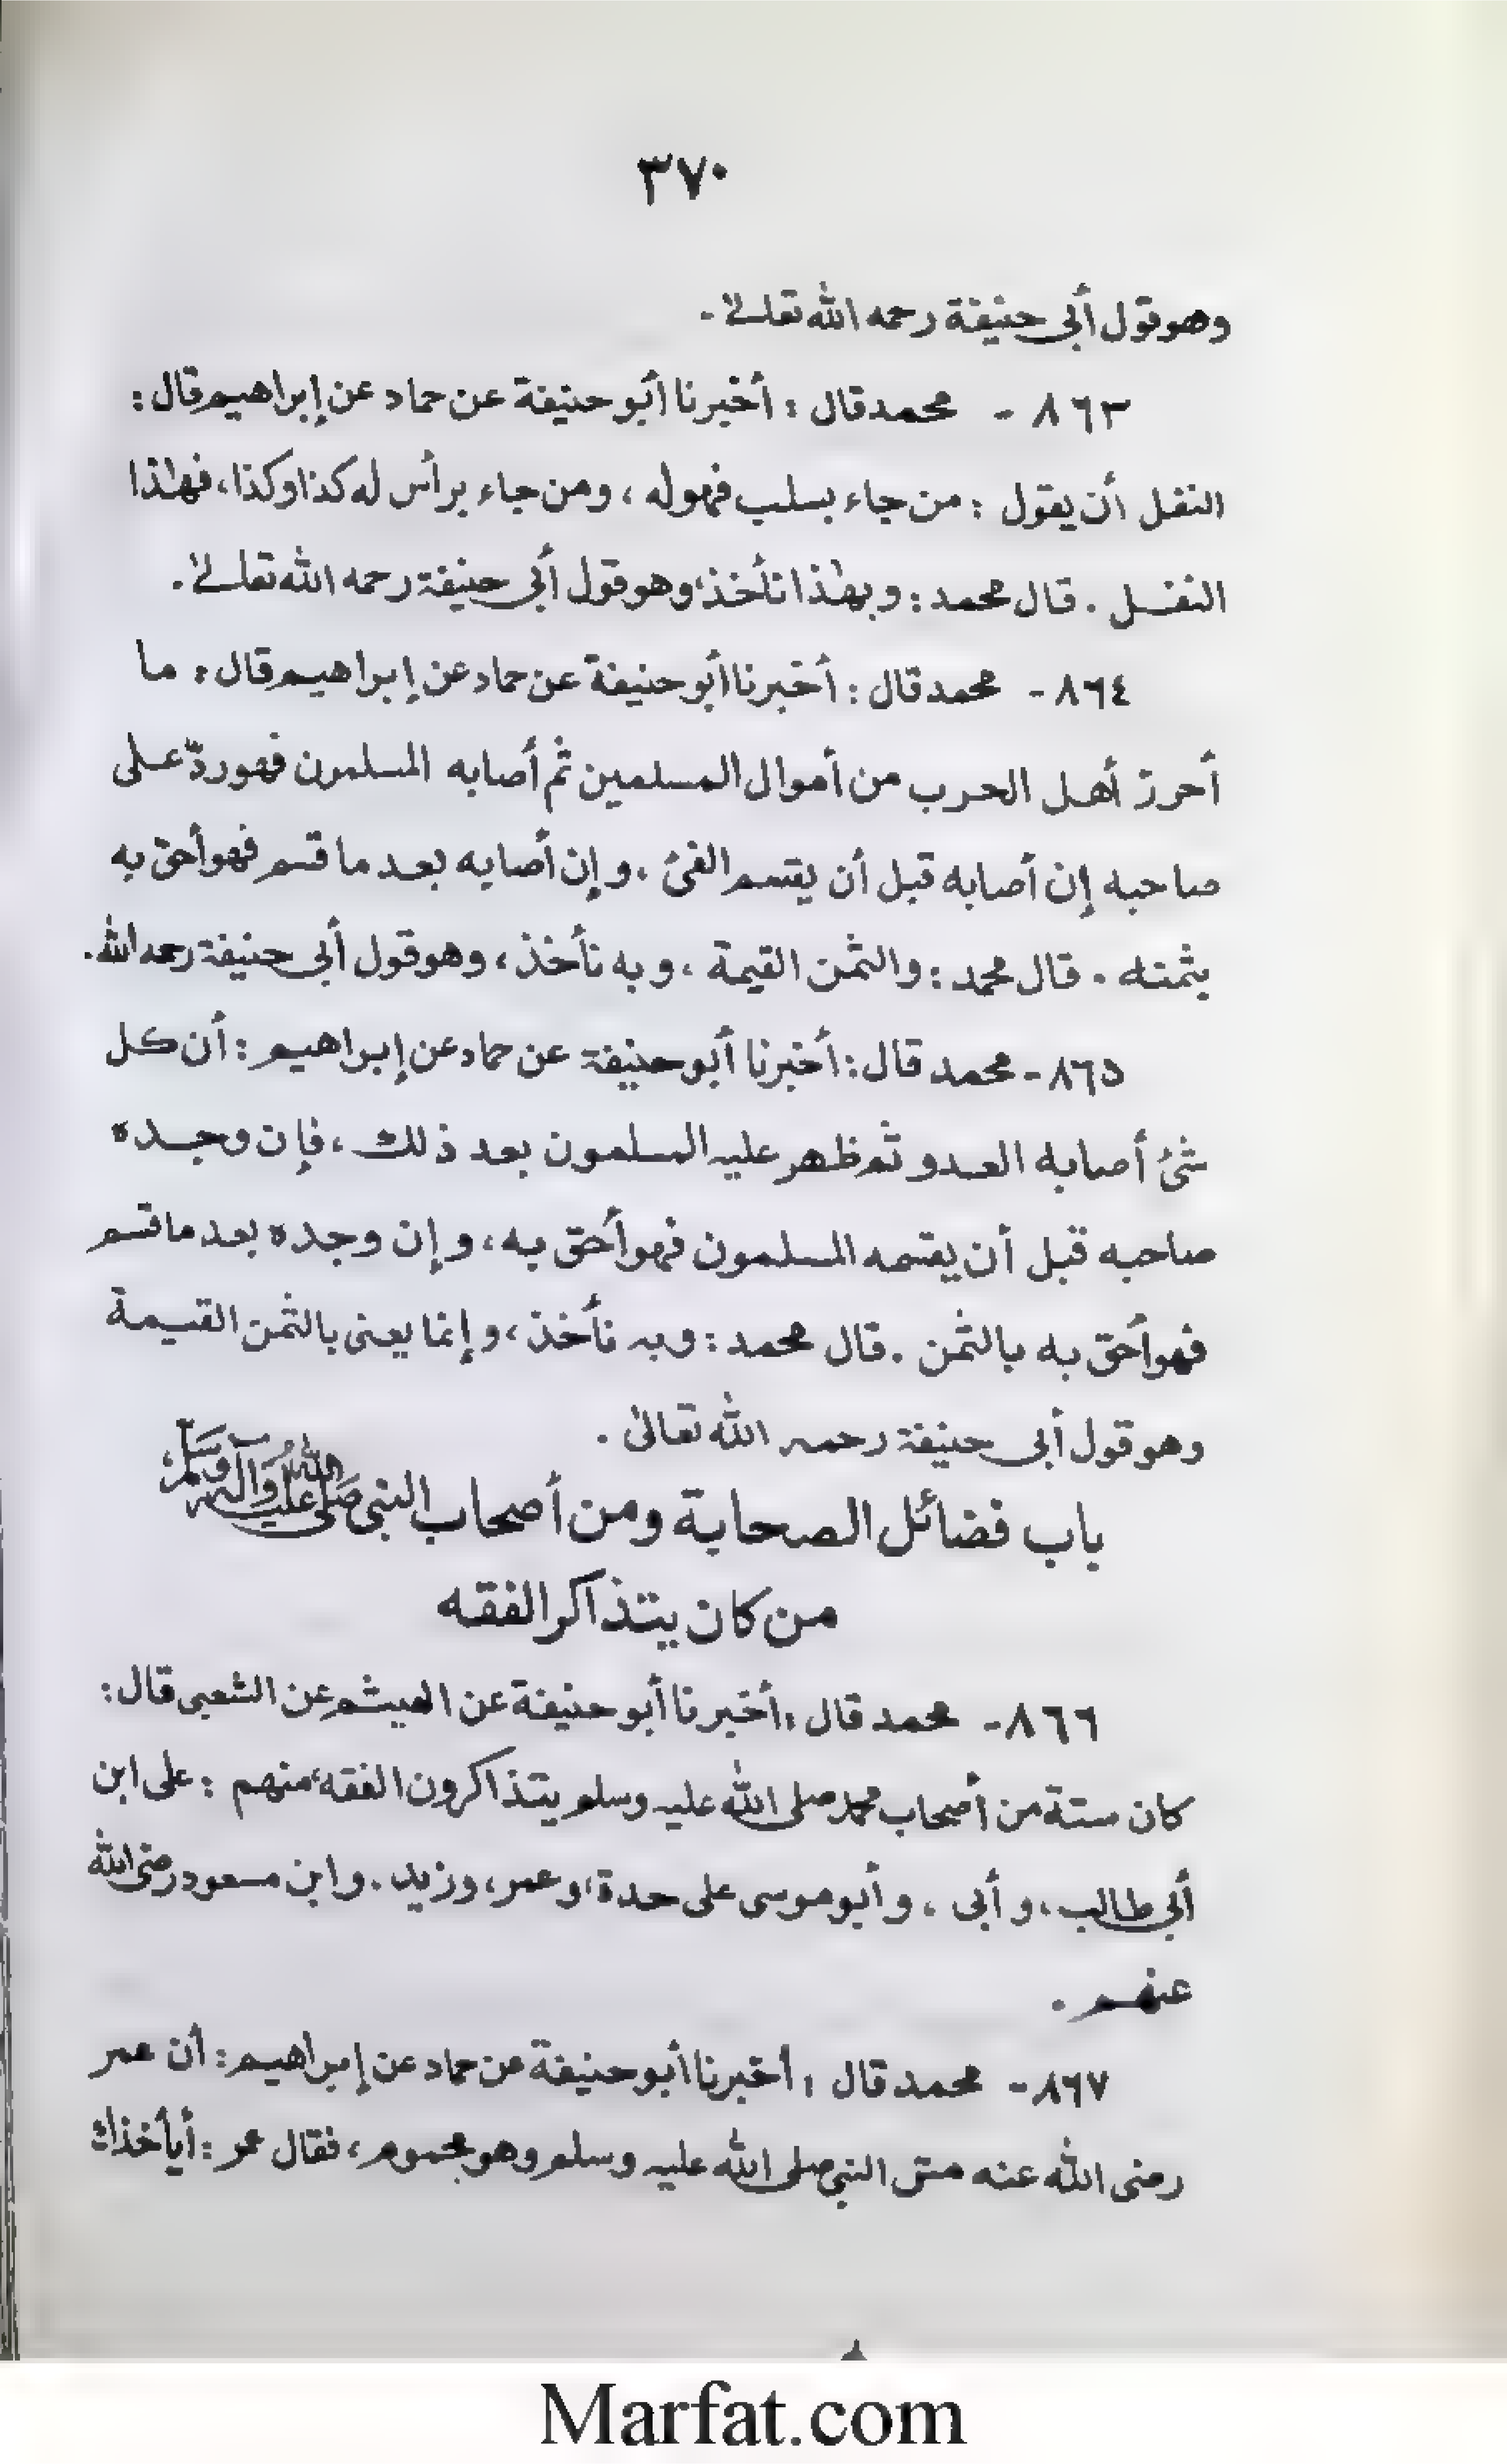 ٣٧٠
وهو قول أبي حنيفة رحمه الله تعالىٰ.
٨٦٣ - محمد قال : أخبرنا أبو حنيفة عن حماد عن إبراهيم قال :
النفل أن يقول : من جاء بسلب فهو له ، ومن جاء برأس له كذا وكذا، فهٰذا
النفل . قال محمد : وبهٰذا نأخذ، وهو قول أبي حنيفة رحمه الله تعالىٰ.
٨٦٤ - محمد قال : أخبرنا أبو حنيفة عن حماد عن إبراهيم قال : ما
أحرز أهل الحرب من أموال المسلمين ثم أصابه المسلمون فهو ردّ على
صاحبه إن أصابه قبل أن يقسم الفئ ، وإن أصابه بعد ما قسم فهو أحق به
بثمنه . قال محمد : والثمن القيمة ، وبه نأخذ ، وهو قول أبي حنيفة رحمه الله.
٨٦٥ - محمد قال : أخبرنا أبو حنيفة عن حماد عن إبراهيم : أن كل
شئ أصابه العدو ثم ظهر عليه المسلمون بعد ذلك ، فإن وجده
صاحبه قبل أن يقسمه المسلمون فهو أحق به ، وإن وجده بعد ما قسم
فهو أحق به بالثمن . قال محمد : وبه نأخذ ، وإنما يعنى بالثمن القيمة
وهو قول أبي حنيفة رحمه الله تعالىٰ .
باب فضائل الصحابة ومن أصحاب النبي صَلَّى اللهُ عَلَيْهِ وَآلِهِ وَسَلَّم
من كان يتذاكر الفقه
٨٦٦ - محمد قال : أخبرنا أبو حنيفة عن الهيثم عن الشعبي قال :
كان ستة من أصحاب محمد صلى الله عليه وسلم يتذاكرون الفقه، منهم : على ابن
أبي طالب ، و أبي ، وأبو موسى على حدة، وعمر، وزيد . وابن مسعود رضى الله
عنهم .
٨٦٧ - محمد قال : أخبرنا أبو حنيفة عن حماد عن إبراهيم : أن عمر
رضى الله عنه مس النبي صلى الله عليه وسلم وهو محموم ، فقال عمر : أيأخذك
Marfat.com